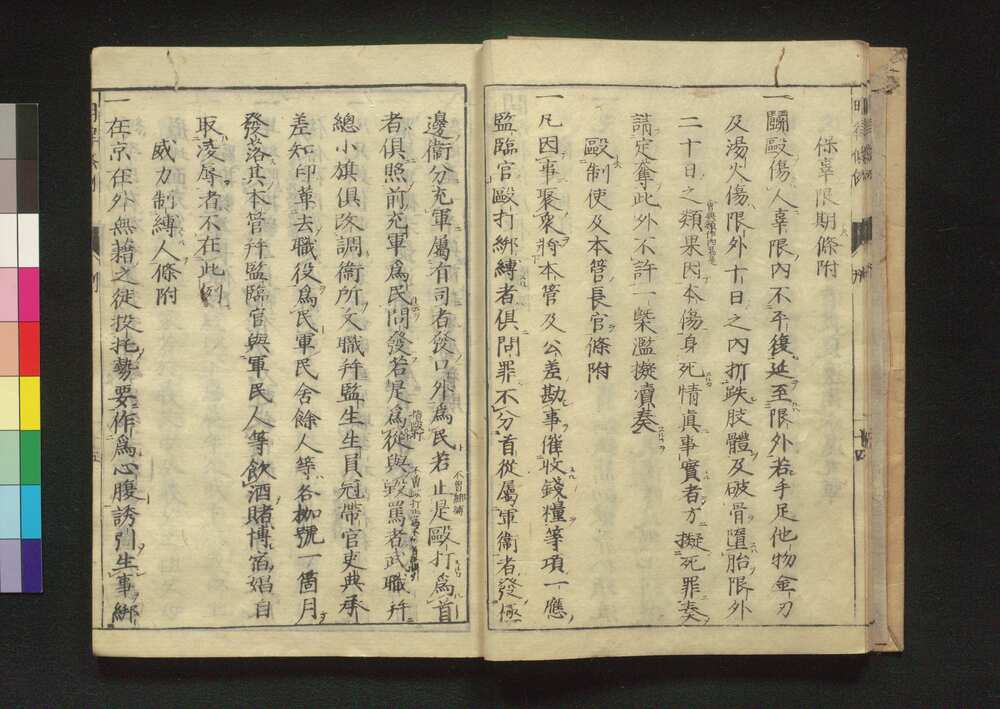 保辜限期條附
一鬪毆傷人辜限內不平復延至限外若手足他物金刃
及湯火傷限外十日之內折跌肢體及破骨墮胎限外
二十日之類果因本傷身死情真事實者方擬死罪奏
請定奪此外不許一槩濫擬瀆奏
毆制使及本管長官條附
一凡因事聚衆將本管及公差勘事催收錢糧等項一應
監臨官毆打綁縛者俱問罪不分首從屬軍衞者發極
邊衞分充軍屬有司者發口外爲民若止是毆打爲首
不曾綁縛
者俱照前充軍爲民問發若是爲從與毀罵者武職幷
總小旗俱改調衞所文職幷監生生員冠帶官吏典承
差知印革去職役爲民軍民舍餘人等各枷號一箇月
發落其本管幷監臨官與軍民人等飲酒賭博宿娼自
取凌辱者不在此例
威力制縛人條附
一在京在外無藉之徒投托勢要作爲心腹誘引生事綁